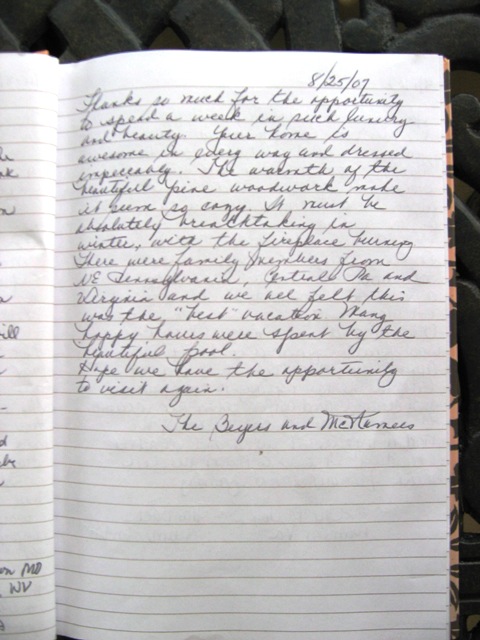 8/25/07
Thanks so much for the opportunity
to spend a week in such luxury
and beauty. Your home is
awesome in every way and dressed
impeccably. The warmth of the
beautiful pine woodwork make
it seem so cozy. It must be
absolutely breathtaking in
winter, with the fireplace burning
There were family members from
NE Pennsylvania, Central Pa and
Virginia and we all felt this
was the "best" vacation. Many
happy hours were spent by the
beautiful pool.
Hope we have the opportunity
to visit again.
The Beyers and
MD
WV